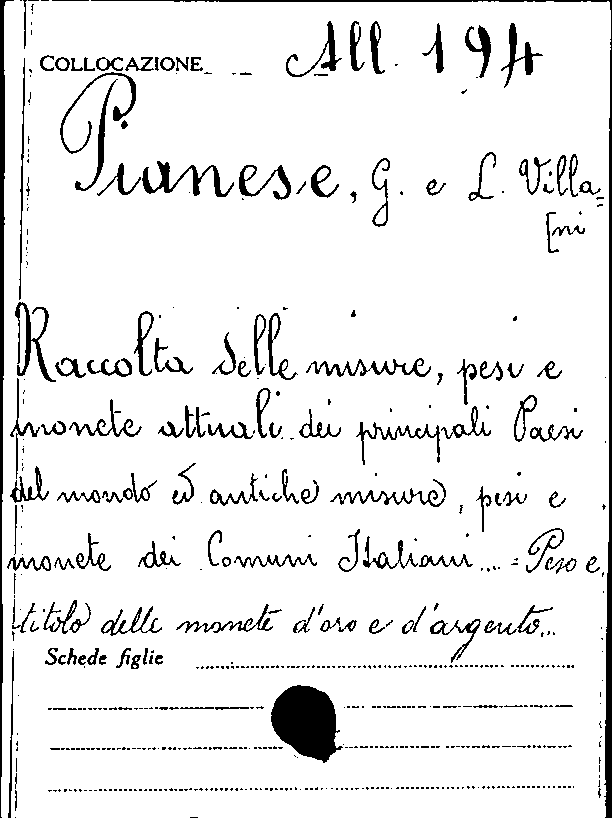 COLLOCAZIONE All. 194
Pianese, G. e L. Villa=
[ni
Raccolta delle misure, pesi e
monete attuali dei principali Paesi
del mondo ed antiche misure, pesi e
monete dei Comuni Italiani... = Peso e
titolo delle monete d'oro e d'argento...
Schede figlie